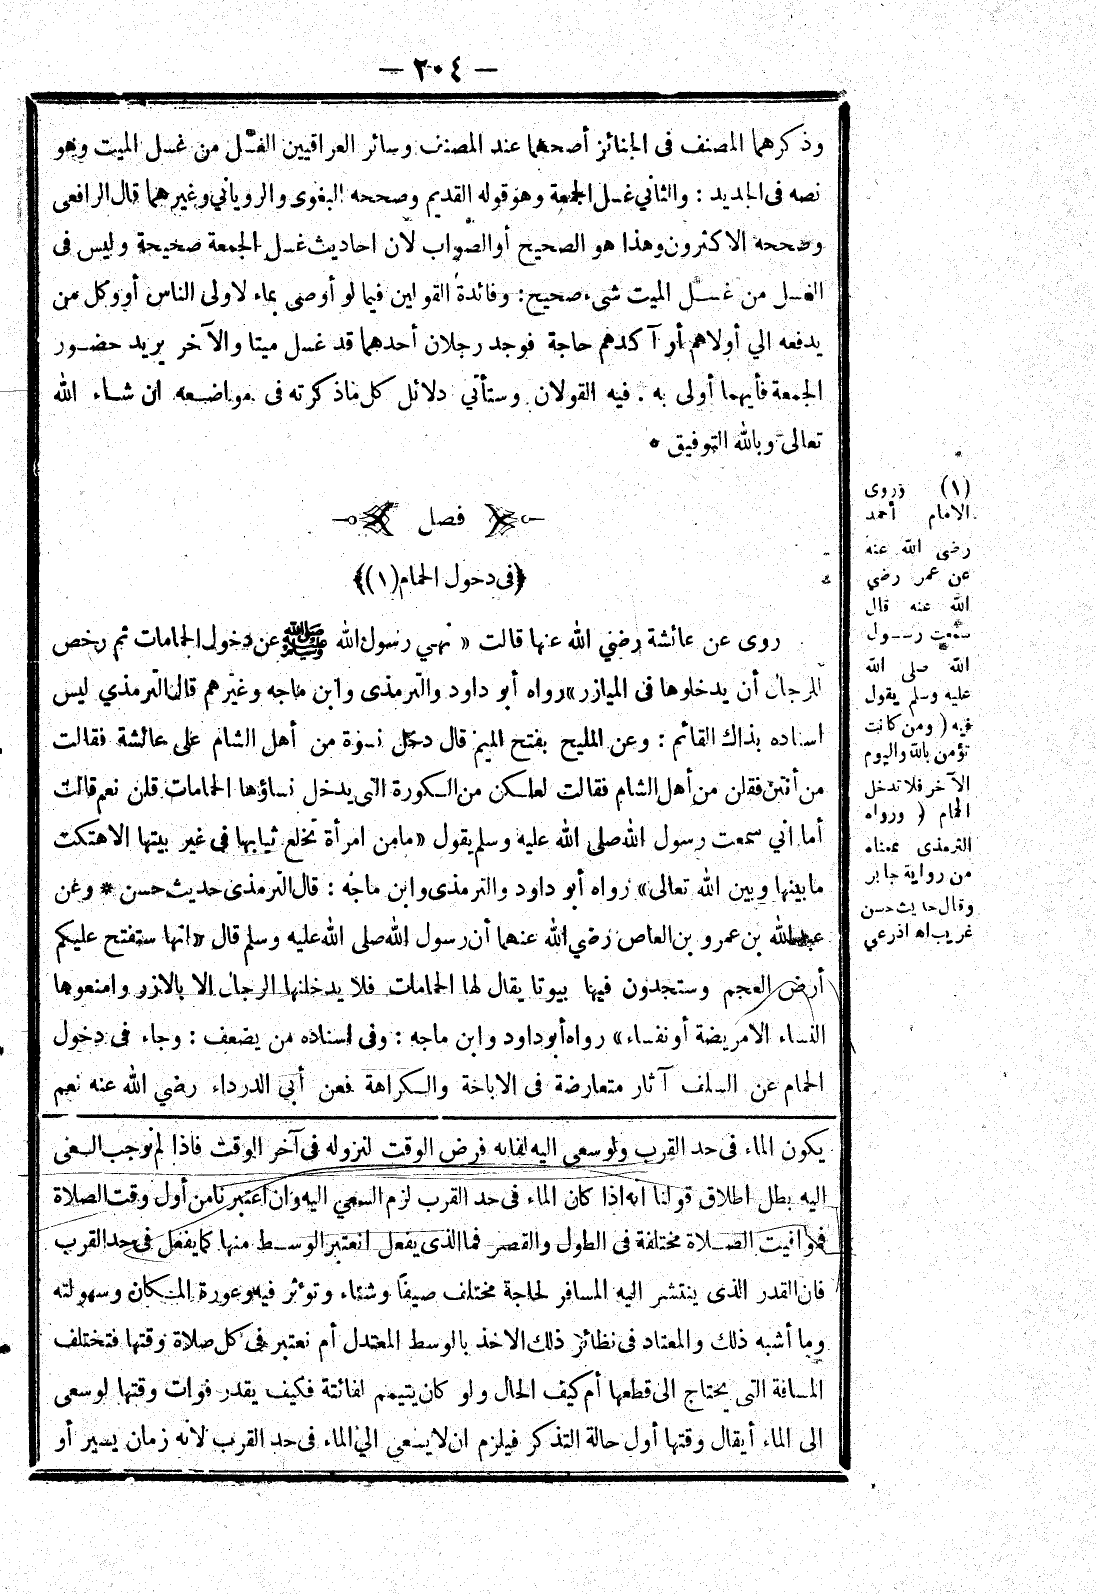 — ٢٠٤ —
وذكرهما المصنف فى الجنائز أصحهما عند المصنف وسائر العراقيين الغسل من غسل الميت وهو
نصه فى الجديد : والثاني غسل الجمعة وهو قوله القديم وصححه البغوى والروياني وغيرهما قال الرافعى
وصححه الاكثرون وهذا هو الصحيح أو الصواب لان احاديث غسل الجمعة صحيحة وليس فى
الغسل من غسل الميت شىء صحيح : وفائدة القولين فيما لو أوصى بماء لاولى الناس أو وكل من
يدفعه الي أولاهم أو آكدهم حاجة فوجد رجلان أحدهما قد غسل ميتا والآخر يريد حضور
الجمعة فأيهما أولى به . فيه القولان وستأتي دلائل كل ماذكرته فى مواضعه ان شاء الله
تعالى وبالله التوفيق *
فصل
﴿فى دخول الحمام (١)﴾
روى عن عائشة رضي الله عنها قالت « نهي رسول الله ﷺ عن دخول الحمامات ثم رخص
للرجال أن يدخلوها فى الميازر » رواه أبو داود والترمذى وابن ماجه وغيرهم قال الترمذي ليس
اسناده بذاك القائم : وعن المليح بفتح الميم قال دخل نسوة من أهل الشام على عائشة فقالت
من أنتن فقلن من أهل الشام فقالت لعلكن من الكورة التى يدخل نساؤها الحمامات قلن نعم قالت
أما اني سمعت رسول الله صلى الله عليه وسلم يقول « مامن امرأة تخلع ثيابها فى غير بيتها الا هتكت
ما بينها وبين الله تعالى » رواه أبو داود والترمذى وابن ماجه : قال الترمذى حديث حسن * وعن
عبد الله بن عمرو بن العاص رضي الله عنهما أن رسول الله صلى الله عليه وسلم قال « انها ستفتح عليكم
أرض العجم وستجدون فيها بيوتا يقال لها الحمامات فلا يدخلنها الرجال الا بالازر وامنعوها
النساء الا مريضة أو نفساء » رواه أبو داود وابن ماجه : وفى اسناده من يضعف : وجاء فى دخول
الحمام عن السلف آثار متعارضة فى الاباحة والكراهة فعن أبي الدرداء رضي الله عنه نعم
(١) وروى
الامام أحمد
رضى الله عنه
عن عمر رضي
الله عنه قال
سمعت رسول
الله صلى الله
عليه وسلم يقول
فيه ( ومن كانت
تؤمن بالله واليوم
الآخر فلا تدخل
الحمام ) ورواه
الترمذى بمعناه
من رواية جابر
وقال حديث حسن
غريب اه اذرعي
يكون الماء فى حد القرب ولو سعى اليه لفاته فرض الوقت لنزوله فى آخر الوقت فاذا لم نوجب السعى
اليه بطل اطلاق قولنا انه اذا كان الماء فى حد القرب لزم السعي اليه وان اعتبرنا من أول وقت الصلاة
فمواقيت الصلاة مختلفة فى الطول والقصر فما الذى يفعل انعتبر الوسط منها كما يفعل فى حد القرب
فان القدر الذى ينتشر اليه المسافر لحاجة مختلف صيفا وشتاء وتوثر فيه وعورة المكان وسهولته
وما أشبه ذلك والمعتاد فى نظائر ذلك الاخذ بالوسط المعتدل أم نعتبر فى كل صلاة وقتها فتختلف
المسافة التى يحتاج الى قطعها أم كيف الحال ولو كان يتيمم لفائتة فكيف يقدر فوات وقتها لو سعى
الى الماء أيقال وقتها أول حالة التذكر فيلزم ان لا يسعى الي الماء فى حد القرب لانه زمان يسير أو